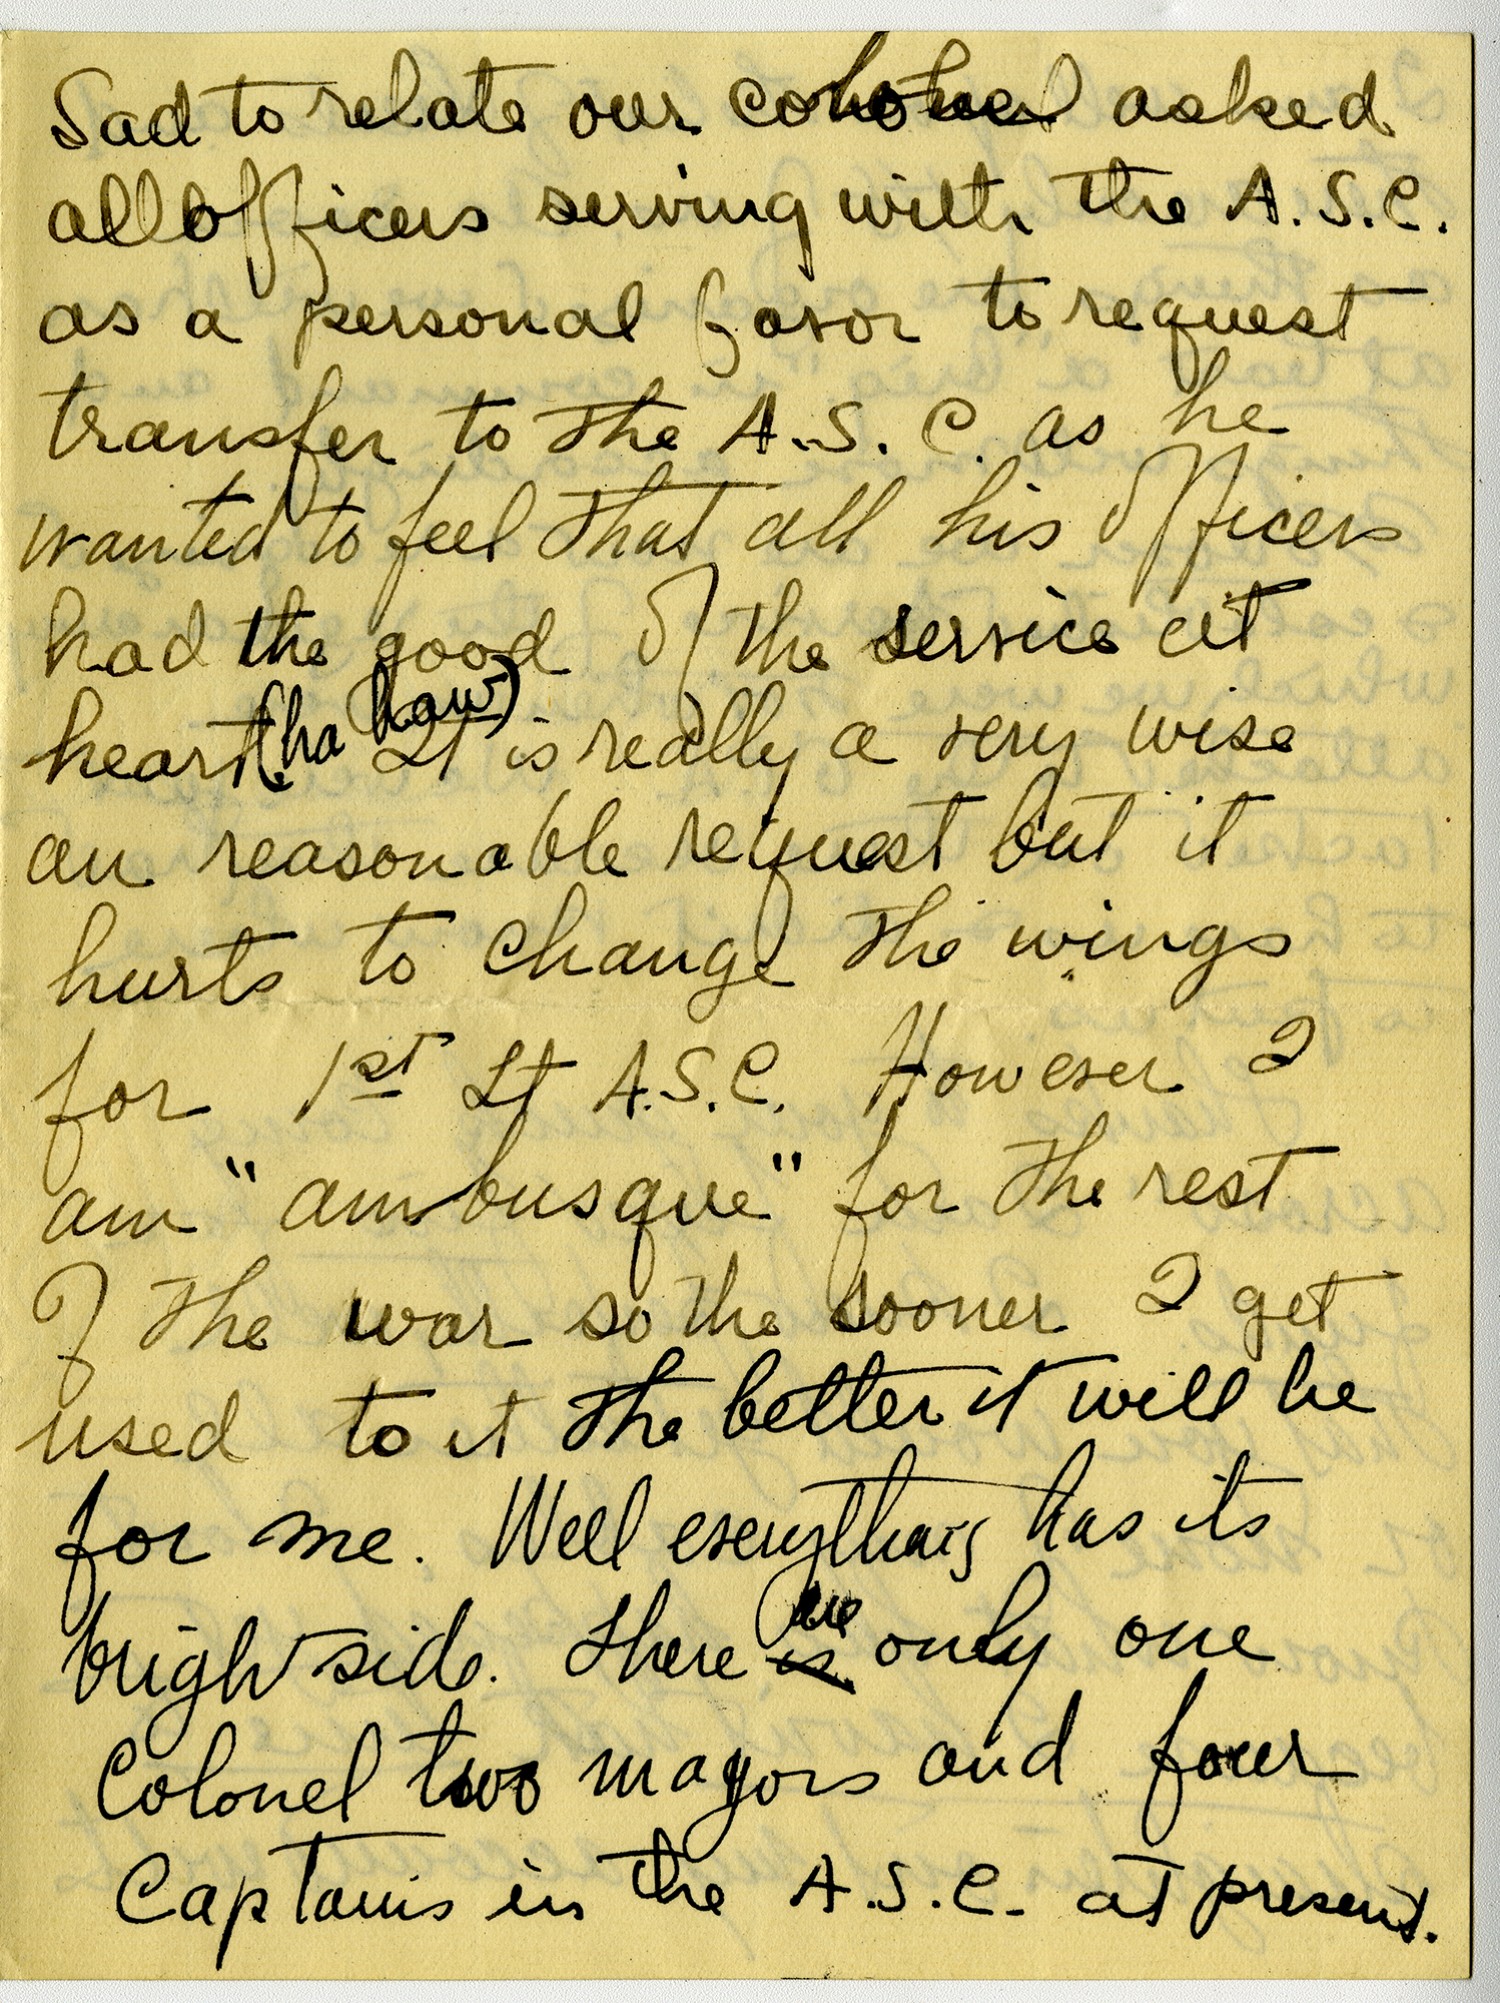 Sad to relate our colonel asked
all officers serving with the A.S.C.
as a personal favor to request
transfer to the A.S.C. as he
wanted to feel that all his officers
had the good of the service at
heart (ha haw) It is really a very wise
an reasonable request but it
hurts to change the wings
for 1st Lt A.S.C. However I
am "ambusque" for the rest
of the war so the sooner I get
used to it the better it will be
for me. Well everything has its
bright side. There is are only one
Colonel two majors and four
Captains in the A.S.C. at present.